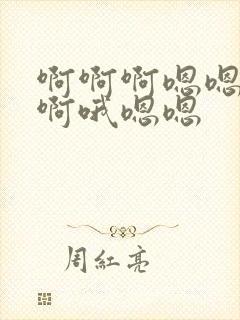 啊啊啊嗯嗯
啊哦嗯嗯
周红亮